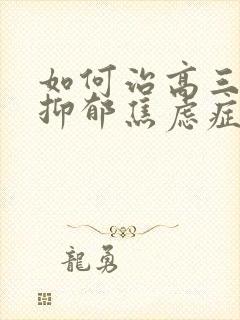 如何治高三
抑郁焦虑症
龍勇